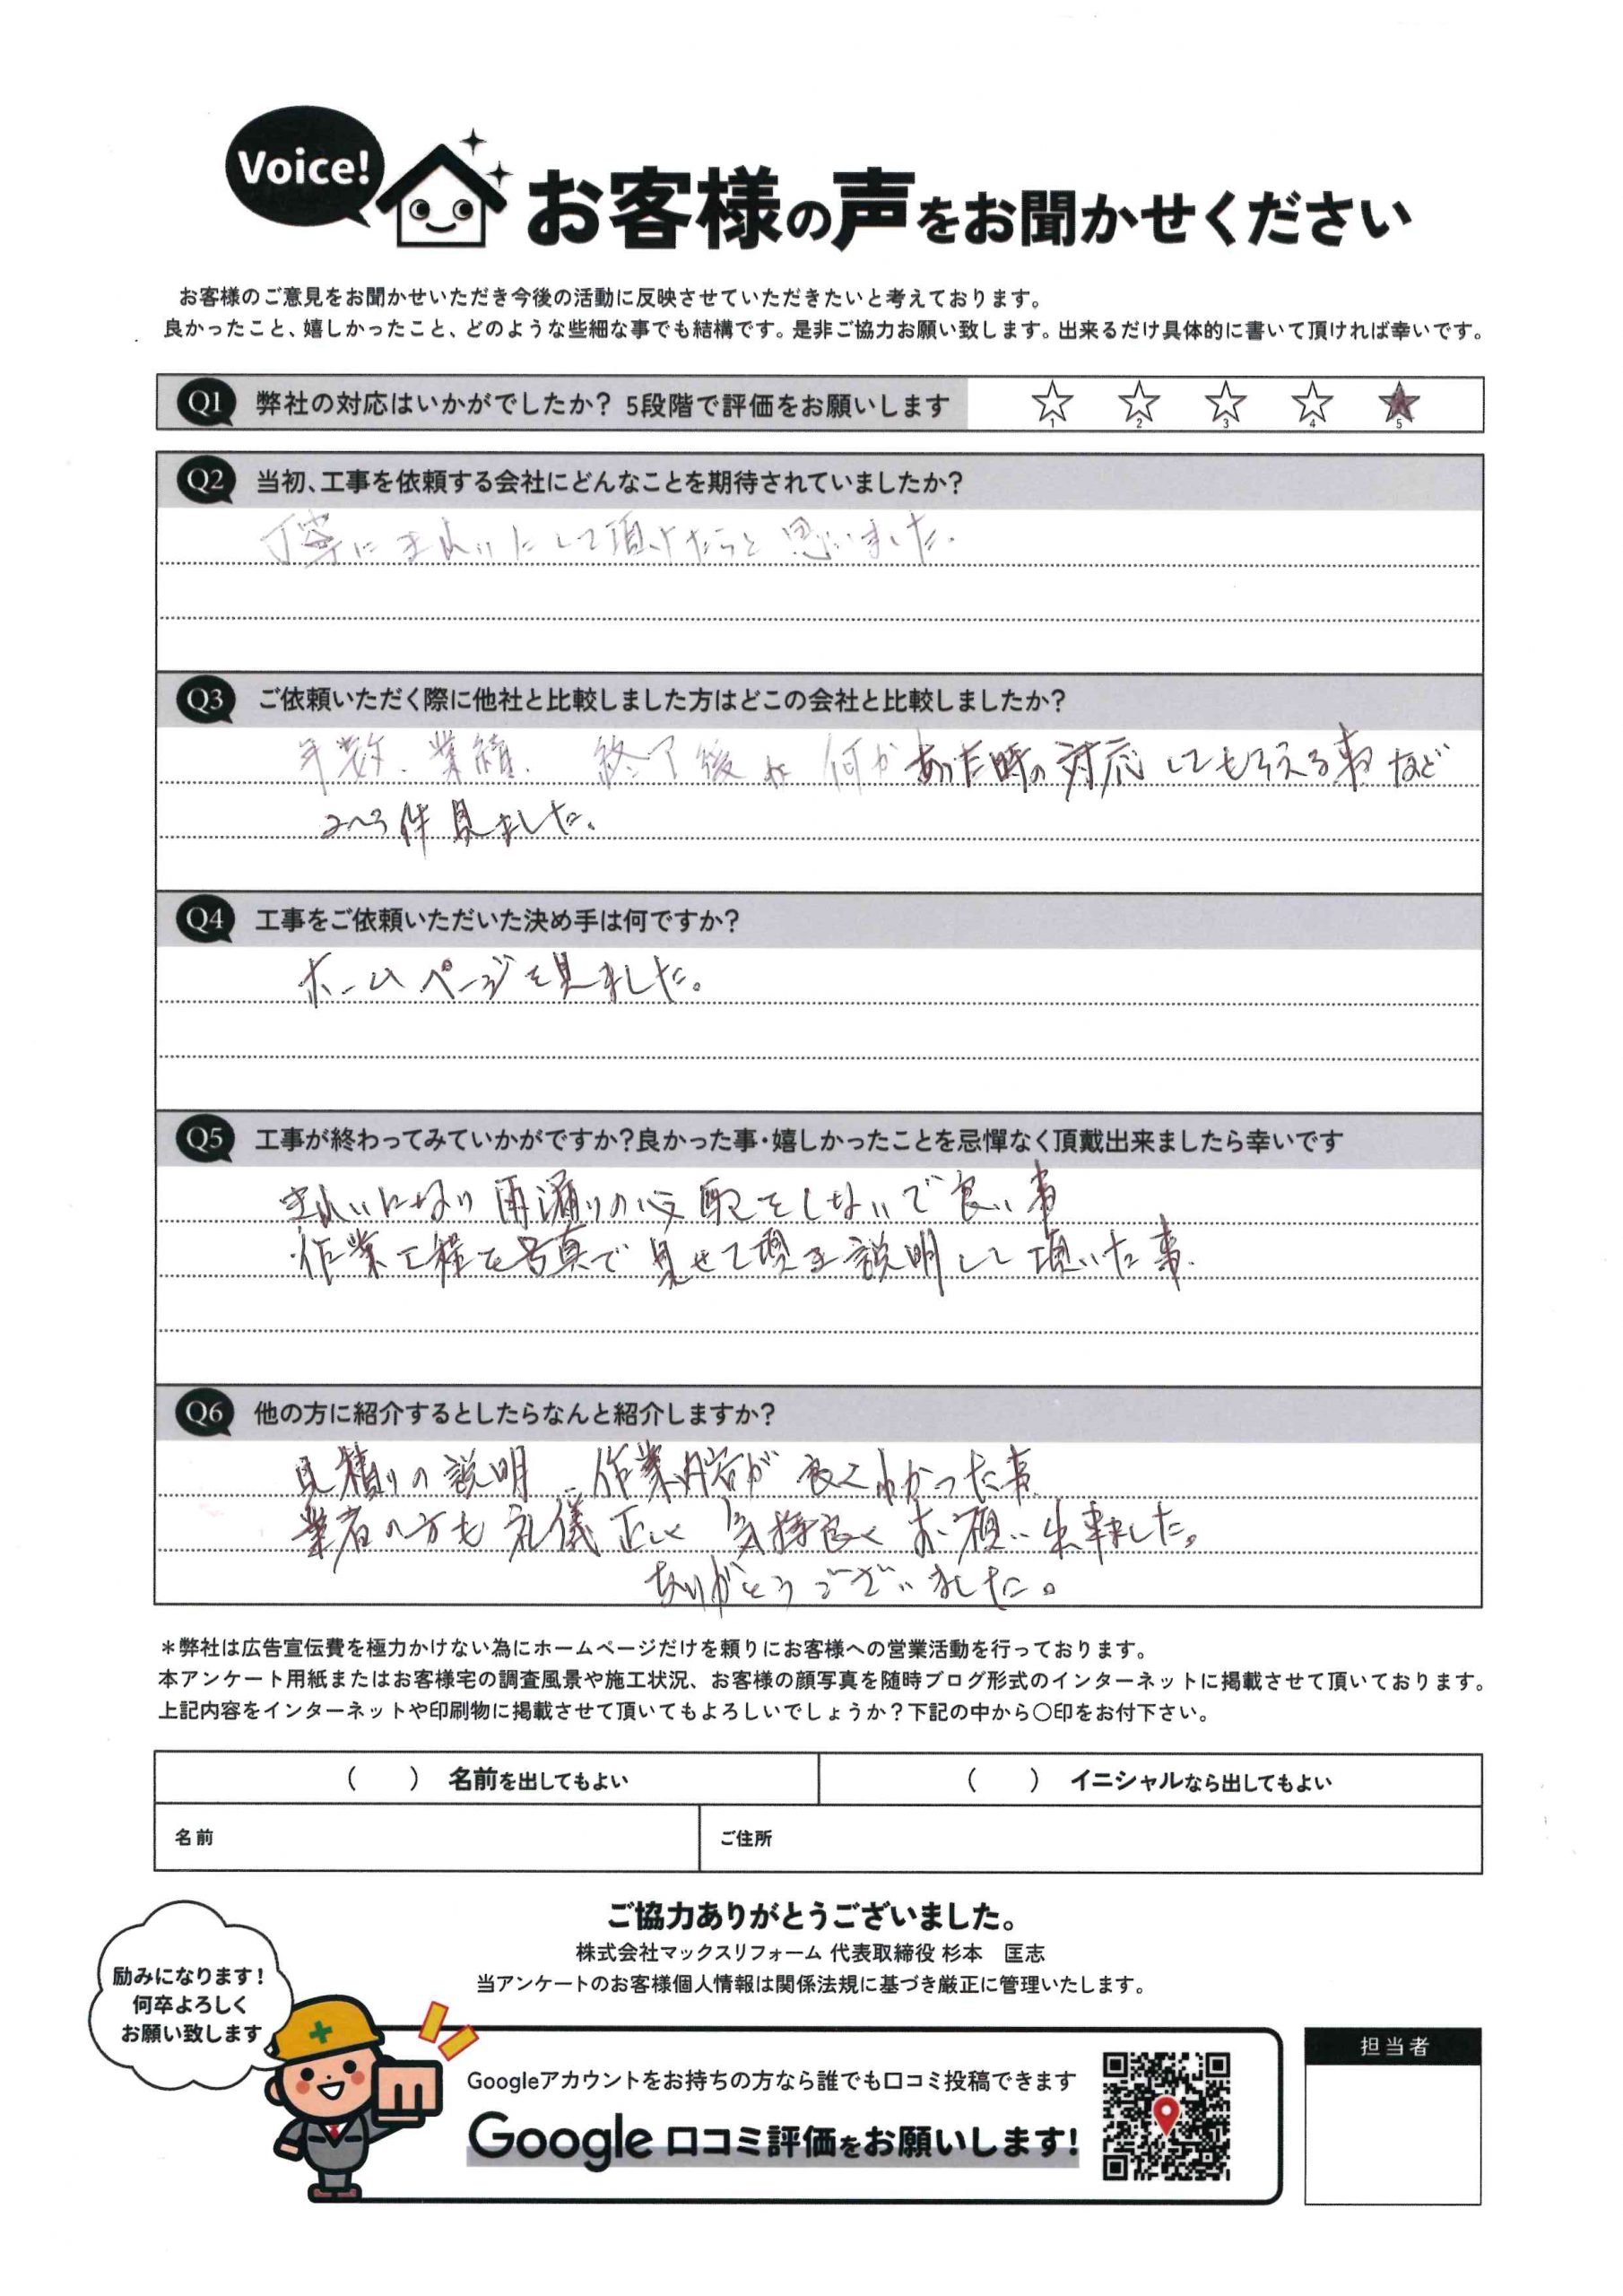 Voice!
お客様の声をお聞かせください
お客様のご意見をお聞かせいただき今後の活動に反映させていただきたいと考えております。
良かったこと、嬉しかったこと、どのような些細な事でも結構です。是非ご協力お願い致します。出来るだけ具体的に書いて頂ければ幸いです。
Q1 弊社の対応はいかがでしたか? 5段階で評価をお願いします ☆1 ☆2 ☆3 ☆4 ★5
Q2 当初、工事を依頼する会社にどんなことを期待されていましたか?
丁寧にきれいにして頂けたらと思いました。
Q3 ご依頼いただく際に他社と比較しました方はどこの会社と比較しましたか?
年数、業績、終了後 何かあった時の対応してもらえる事など
2〜3件見ました。
Q4 工事をご依頼いただいた決め手は何ですか?
ホームページを見ました。
Q5 工事が終わってみていかがですか?良かった事・嬉しかったことを忌憚なく頂戴出来ましたら幸いです
きれいになり雨漏りの心配をしないで良い事
作業工程を写真で見せて頂き説明して頂いた事.
Q6 他の方に紹介するとしたらなんと紹介しますか?
見積りの説明、作業内容が良くわかった事
業者の方も礼儀正しく気持良くお願い出来ました。
ありがとうございました。
＊弊社は広告宣伝費を極力かけない為にホームページだけを頼りにお客様への営業活動を行っております。
本アンケート用紙またはお客様宅の調査風景や施工状況、お客様の顔写真を随時ブログ形式のインターネットに掲載させて頂いております。
上記内容をインターネットや印刷物に掲載させて頂いてもよろしいでしょうか?下記の中から〇印をお付下さい。
（　　）名前を出してもよい （　　）イニシャルなら出してもよい
名前 ご住所
ご協力ありがとうございました。
株式会社マックスリフォーム 代表取締役 杉本　匡志
当アンケートのお客様個人情報は関係法規に基づき厳正に管理いたします。
励みになります!
何卒よろしく
お願い致します
担当者
Googleアカウントをお持ちの方なら誰でも口コミ投稿できます
Google 口コミ評価をお願いします!